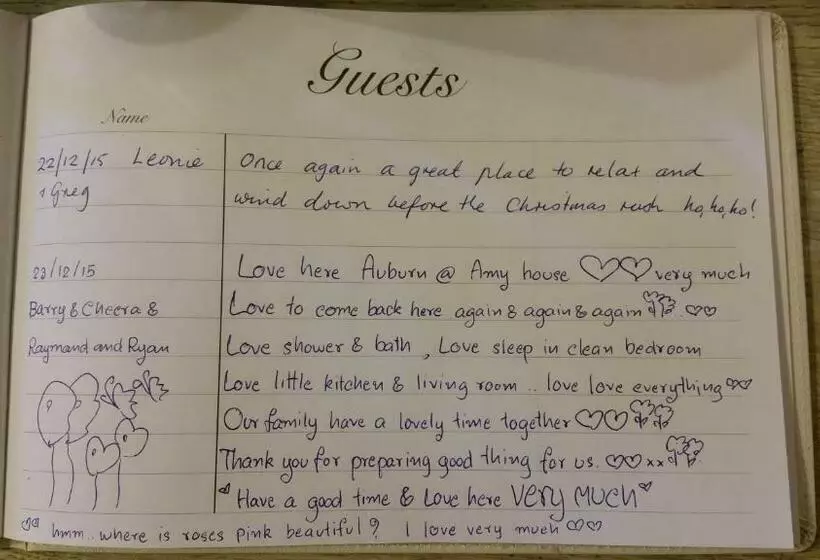 Guests
Name
22/12/15 Leonie Once again a great place to relax and
+ Greg wind down before the Christmas rush ho, ho, ho!
23/12/15 Love here Auburn @ Amy house ♡♡ very much
Barry & Cheera & Love to come back here again & again & again ♡♡
Raymand and Ryan Love shower & bath, Love sleep in clean bedroom
Love little kitchen & living room .. love love everything ♡♡
Our family have a lovely time together ♡♡
Thank you for preparing good thing for us. ♡♡ xx
♡ Have a good time & Love here VERY MUCH ♡
♡♡ hmm.. where is roses pink beautiful? I love very much ♡♡